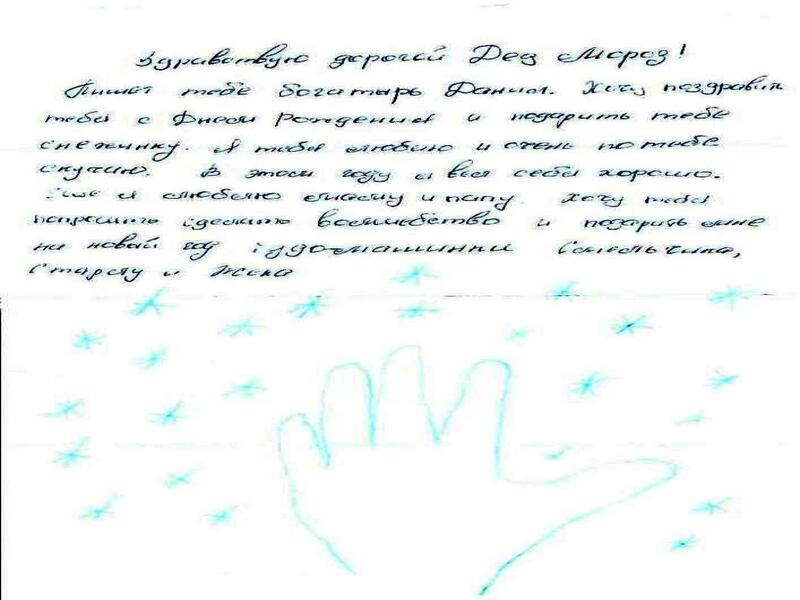 Здравствую дорогой Дед Мороз!
Пишет тебе богатырь Данил. Хочу поздравить
тебя с Днём Рождения и подарить тебе
снежинку. Я тебя люблю и очень по тебе
скучаю. В этом году я вёл себя хорошо.
Ещё я люблю маму и папу. Хочу тебя
попросить сделать волшебство и подарить мне
на новый год чудомашинки
Старсу и Жека